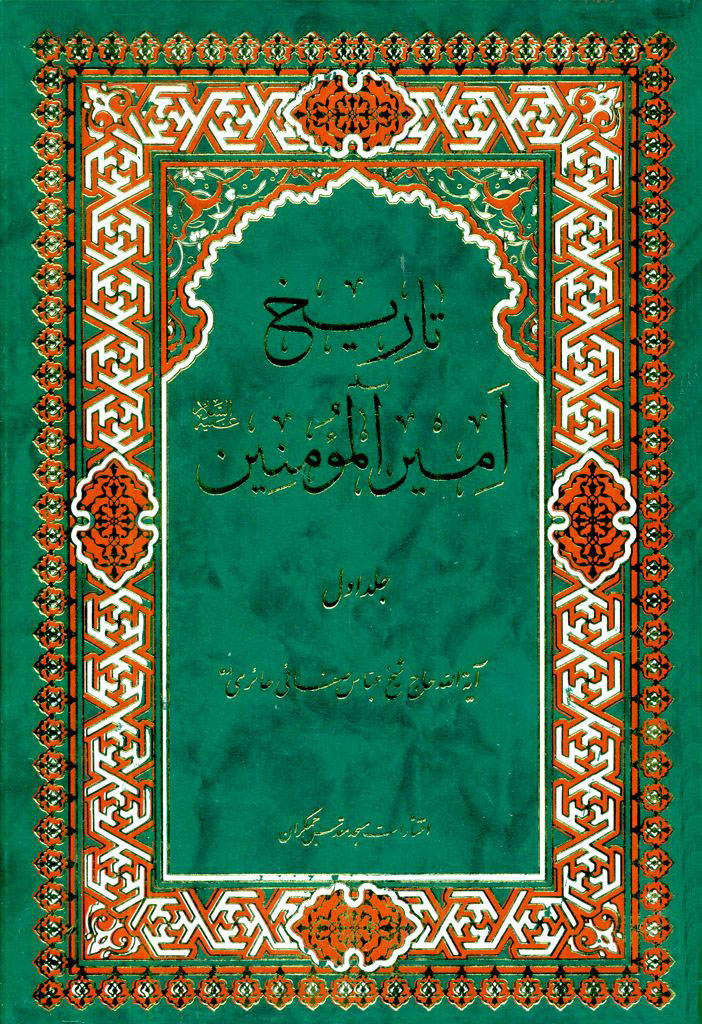 تاریخ
اَمیرالْمُؤمِنین علیه‌السلام
جلد اول
آیة الله حاج شیخ عباس صفائی حائری
انتشارات مسجد مقدس جمکران